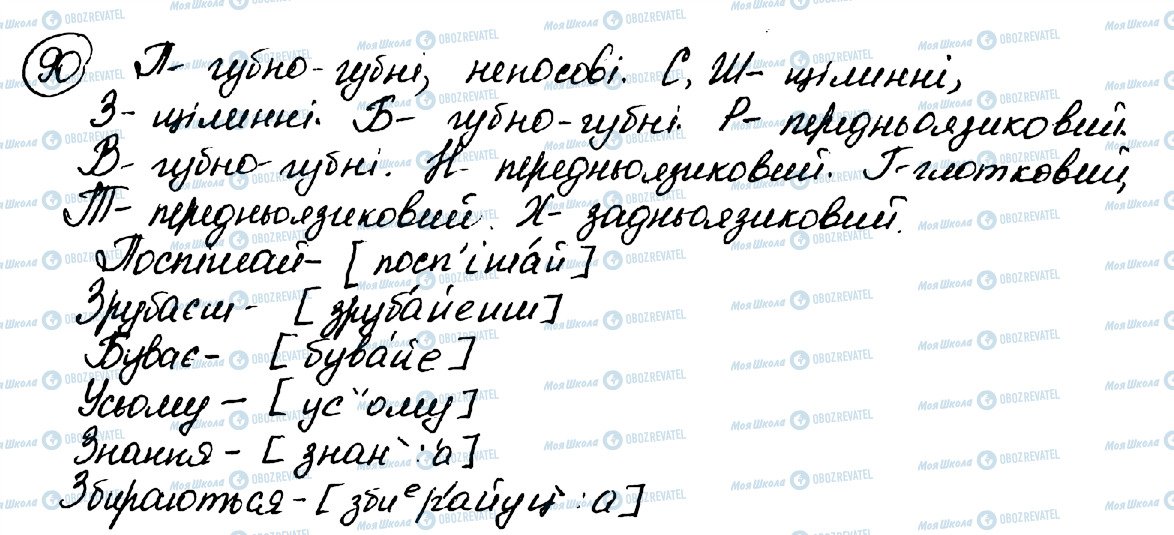 90 П- губно-губні, непосові. С, Ш- щілинні,
З- щілинні. Б- губно-губні. Р- передньоязиковий.
В- губно-губні. Н- передньоязиковий. Г-глотковий,
Т- передньоязиковий. Х- задньоязиковий.
Поспішай- [посп'іша́й]
Зрубаєш- [зруба́йеиш]
Буває- [бува́йе]
Усьому - [ус´ому]
Знання - [знан´:а́]
Збираються - [збиера́йуц´:а]
МояШкола OBOZREVATEL